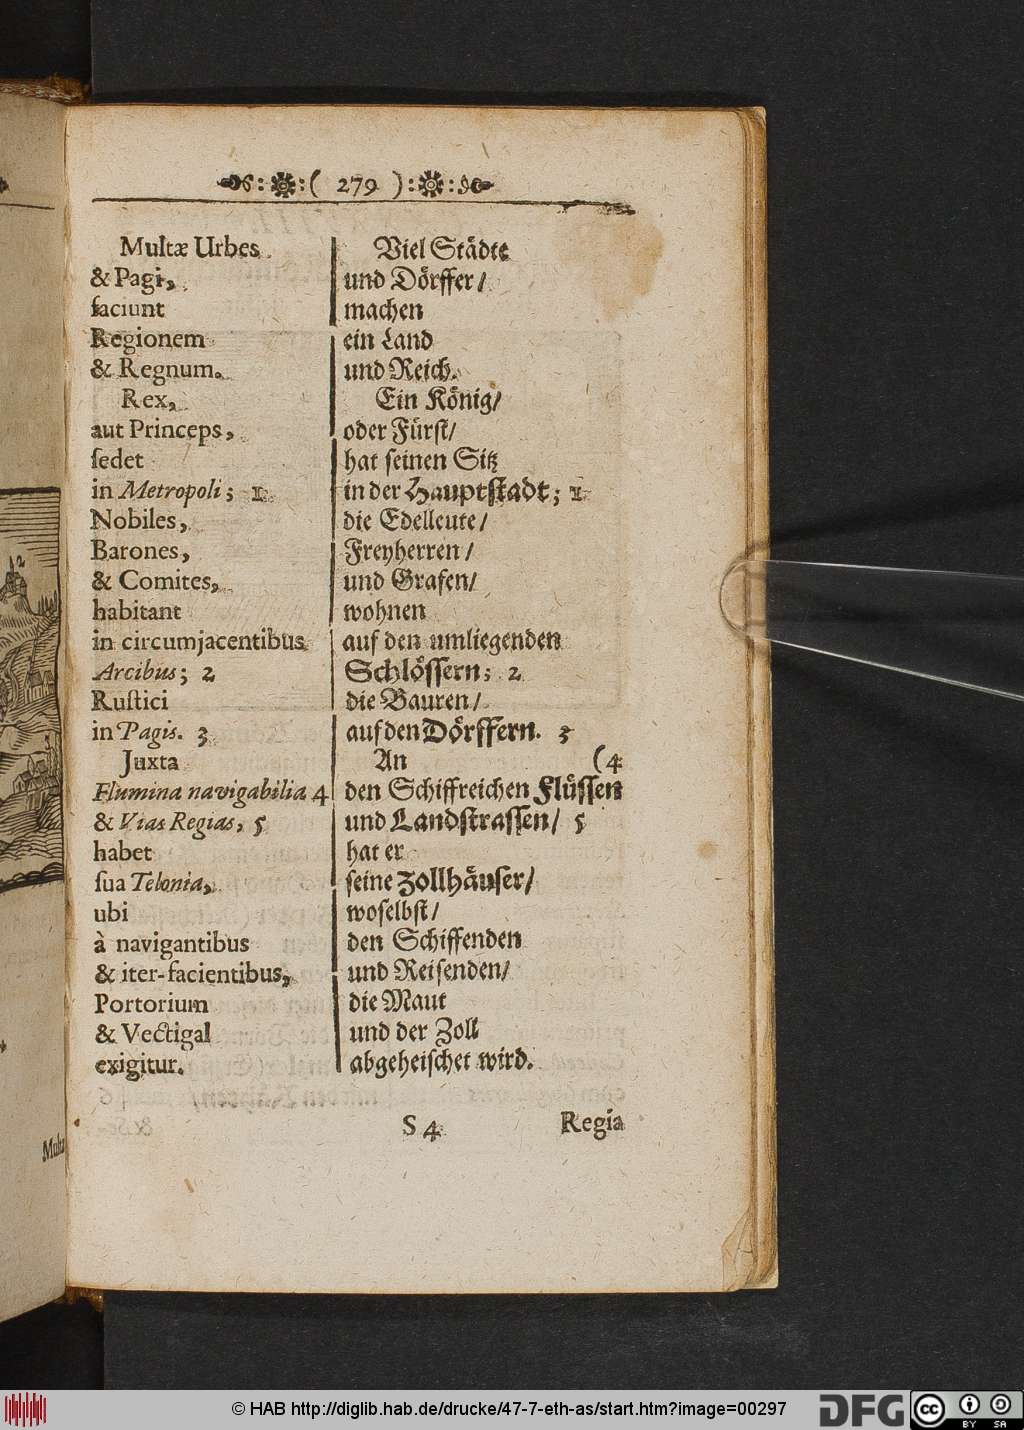 ( 279 )
Multæ Urbes
& Pagi,
faciunt
Regionem
& Regnum.
Rex,
aut Princeps,
ſedet
in Metropoli; 1
Nobiles,
Barones,
& Comites,
habitant
in circumjacentibus
Arcibus; 2
Ruſtici
in Pagis. 3
Juxta
Flumina navigabilia 4
& Vias Regias, 5
habet
ſua Telonia,
ubi
à navigantibus
& iter-facientibus,
Portorium
& Vectigal
exigitur.
Viel Städte
und Dörffer/
machen
ein Land
und Reich.
Ein König/
oder Fürſt/
hat ſeinen Sitz
in der Hauptſtadt; 1
die Edelleute/
Freyherren/
und Grafen/
wohnen
auf den umliegenden
Schlöſſern; 2
die Bauren/
auf den Dörffern. 3
An (4
den Schiffreichen Flüſſen
und Landſtraſſen/ 5
hat er
ſeine Zollhäuſer/
woſelbſt/
den Schiffenden
und Reiſenden/
die Maut
und der Zoll
abgeheiſchet wird.
S 4 Regia
Multæ
© HAB http://diglib.hab.de/drucke/47-7-eth-as/start.htm?image=00297
DFG
cc BY SA